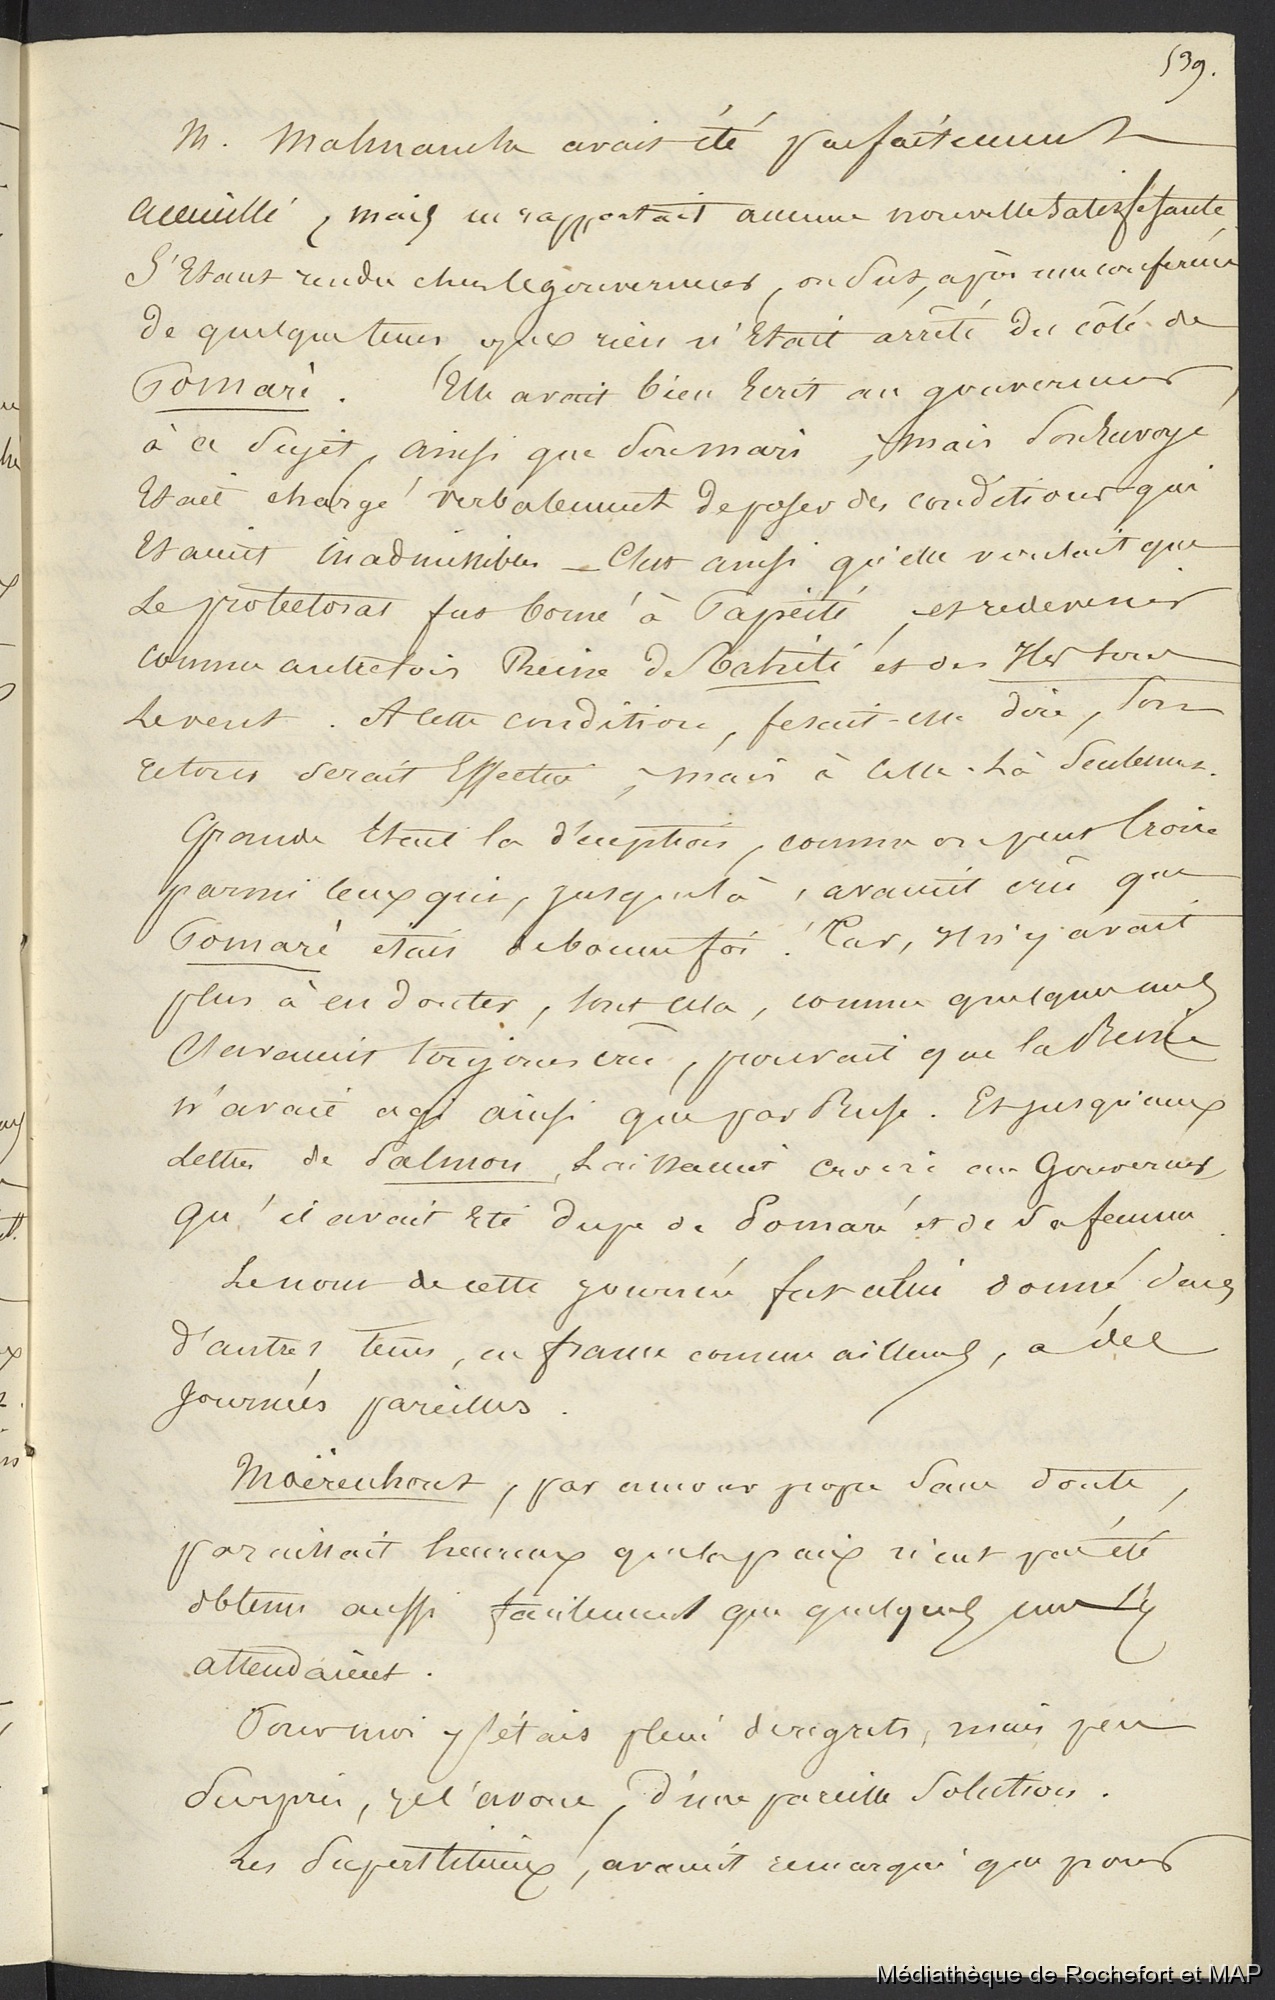 539.
M. Malmanche avait été parfaitement
accueilli, mais ne rapportait aucune nouvelle satisfesante.
S'Etant rendu chez le gouverneur, on sut, après une conférence
de quelque tems, que rien n'Etait arrêté du côté de
Pomaré. Elle avait bien Ecrit au gouverneur,
à ce sujet, ainsi que son mari, mais son Envoyé
Etait chargé verbalement de poser des conditions qui
Etaient inadmissibles _ C'est ainsi qu'elle voulait que
Le protectorat fut borné à Papéïté, et redevenir
comme autrefois Reine de Tahïti et des Iles sous
Le vent. A cette condition, fesait-elle dire, son
retour serait Effectué, mais à celle-là seulement.
Grande Etait la déception, comme on peut Croire
parmi ceux qui, jusque là, avaient crû que
Pomaré était de bonne foi! Car, Il n'y avait
plus à en douter, tout cela, comme quelques uns
L'avaient toujours crû, prouvait que la Reine
n'avait agi ainsi que par Ruse. Et jusqu'aux
Lettres de Salmon, Laissaient croire au Gouverneur
qu'il avait Eté dupe de Pomaré et de sa femme.
Le nom de cette journée fut celui donné dans
d'autres tems, en france comme ailleurs, à des
Journées pareilles.
Moërenhout, par amour propre sans doute,
paraissait heureux que la paix n'eut pas été
obtenu aussi facilement que quelques uns s'y
attendaient.
Pour moi j'étais plein de regrets, mais peu
surpris, je l'avoue, d'une pareille solution.
Les superstitieux, avaient remarqué que pour
Médiathèque de Rochefort et MAP